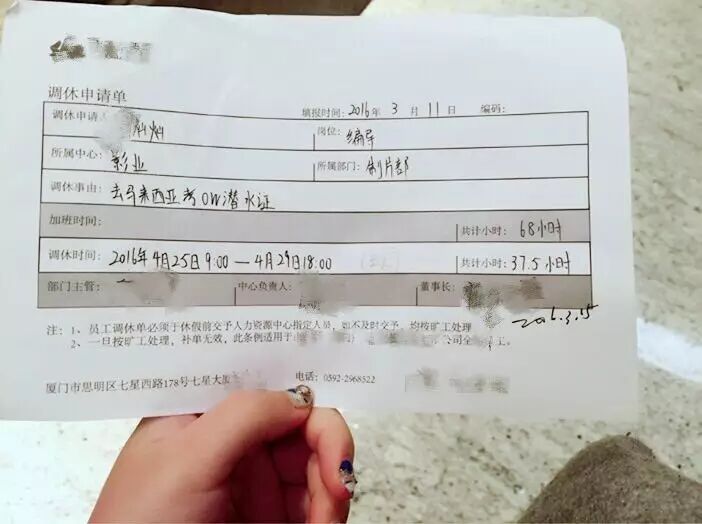 调休申请单 填报时间：2016年 3 月 11 日 编码：
调休申请人 灿灿 岗位：编导
所属中心：影业 所属部门：制片部
调休事由：去马来西亚考OW潜水证
加班时间： 共计小时：68小时
调休时间：2016年4月25日9:00 — 4月29日18:00 共计小时：37.5小时
部门主管： 中心负责人： 董事长：
2016.3.15
注：1、员工调休单必须于休假前交予人力资源中心指定人员，如不及时交予，均按旷工处理
2、一旦按旷工处理，补单无效，此条例适用于 公司全 工。
厦门市思明区七星西路178号七星大 电话：0592-2968522